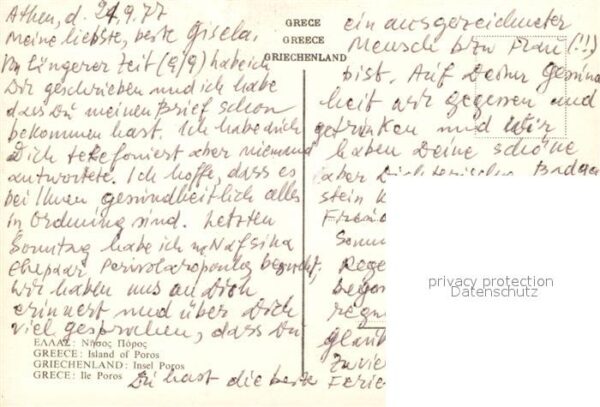 Athen, d. 24.9.77
Meine liebste, beste Gisela.
Vor längerer Zeit (9/9) habe ich
Dir geschrieben und ich habe
dass Du meinen Brief schon
bekommen hast. Ich habe auch
Dich telefoniert aber niemand
antwortete. Ich hoffe, dass es
bei Ihnen gesundheitlich alles
in Ordnung sind. Letzten
Sonntag habe ich Nafsika
Ehepaar Perivolaropoulos besucht,
wir haben uns an Dich
erinnert und über Dich
viel gesprochen, dass Du
ΕΛΛΑΣ: Νῆσος Πόρος
GREECE: Island of Poros
GRIECHENLAND: Insel Poros
GRECE: Ile Poros
Du hast die beste
GRECE
GREECE
GRIECHENLAND
ein ausgezeichneter
Mensch bzw Frau (!!)
bist. Auf Deine Gesund
heit wir gegessen und
getrunken und wir
haben Deine schöne
aber Dichterische Badga
stein
Sonn
Rege
bego
regn
glau
zu vie
Ferie
privacy protection
Datenschutz